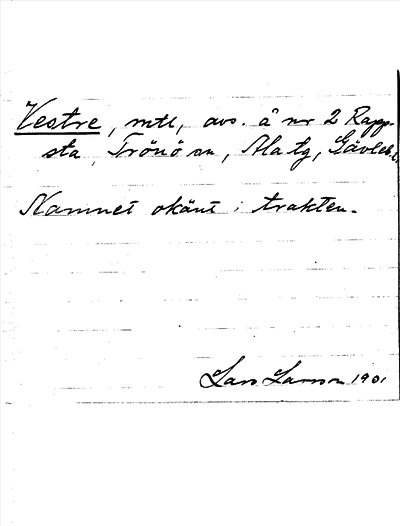 Vestre, mtl, avs. å nr 2 Rapp-
sta, Trönö sn, Ala tg, Gävleb. l.
Namnet okänt i trakten.
Lars Larsson 1901